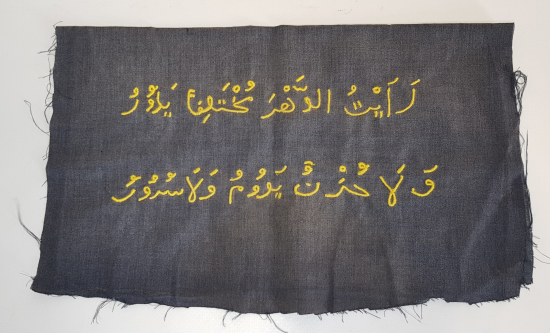 رَأَيْتُ الدَّهْرَ مُخْتَلِفًا يَدُوْرُ
وَلَا حُزْنٌ يَدُوْمُ وَلَا سُرُوْرُ